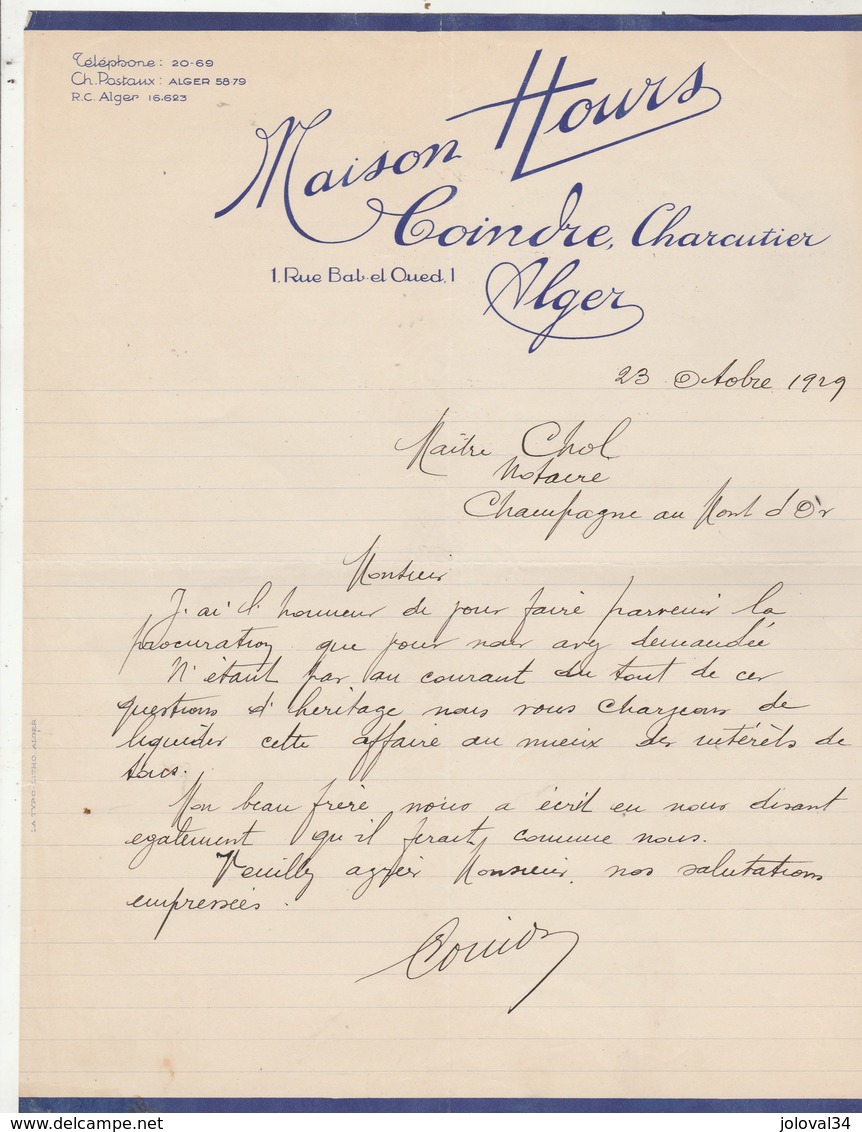 Téléphone: 20-69
Ch. Postaux: ALGER 58-79
R.C. Alger 16.623
Maison Hours
Coindre, Charcutier
1. Rue Bab-el Oued. 1
Alger
23 Octobre 1929
Maître Chol
Notaire
Champagne au Mont d'Or
Monsieur
J'ai l'honneur de vous faire parvenir la
procuration que vous nous avez demandée
N'étant pas au courant du tout de ces
questions d'héritage nous vous chargeons de
liquider cette affaire au mieux des intérêts de
tous.
Mon beau frère nous a écrit en nous disant
egalement qu'il ferait comme nous.
Veuillez agréer Monsieur, nos salutations
empressées.
Coindre
LA TYPO-LITHO ALGER
www.delcampe.net
joloval34